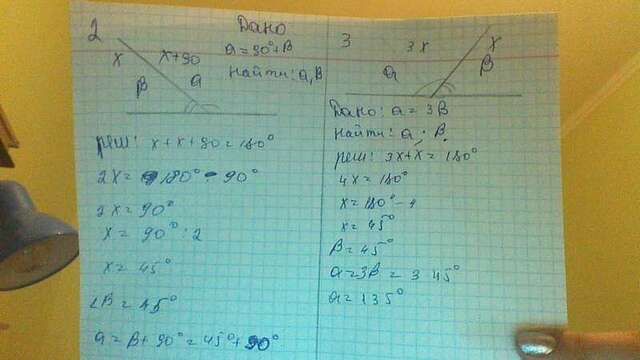 2
Дано
x x+90
a = 90°+B
найти: a, B
B a
реш: x + x + 90 = 180°
2x = 180° - 90°
2x = 90°
x = 90° : 2
x = 45°
∠B = 45°
a = B + 90° = 45° + 90°
3
3x x
a B
Дано: a = 3B
найти: a . B.
реш: 3x + x = 180°
4x = 180°
x = 180° - 4
x = 45°
B = 45°
a = 3B = 3 45°
a = 135°